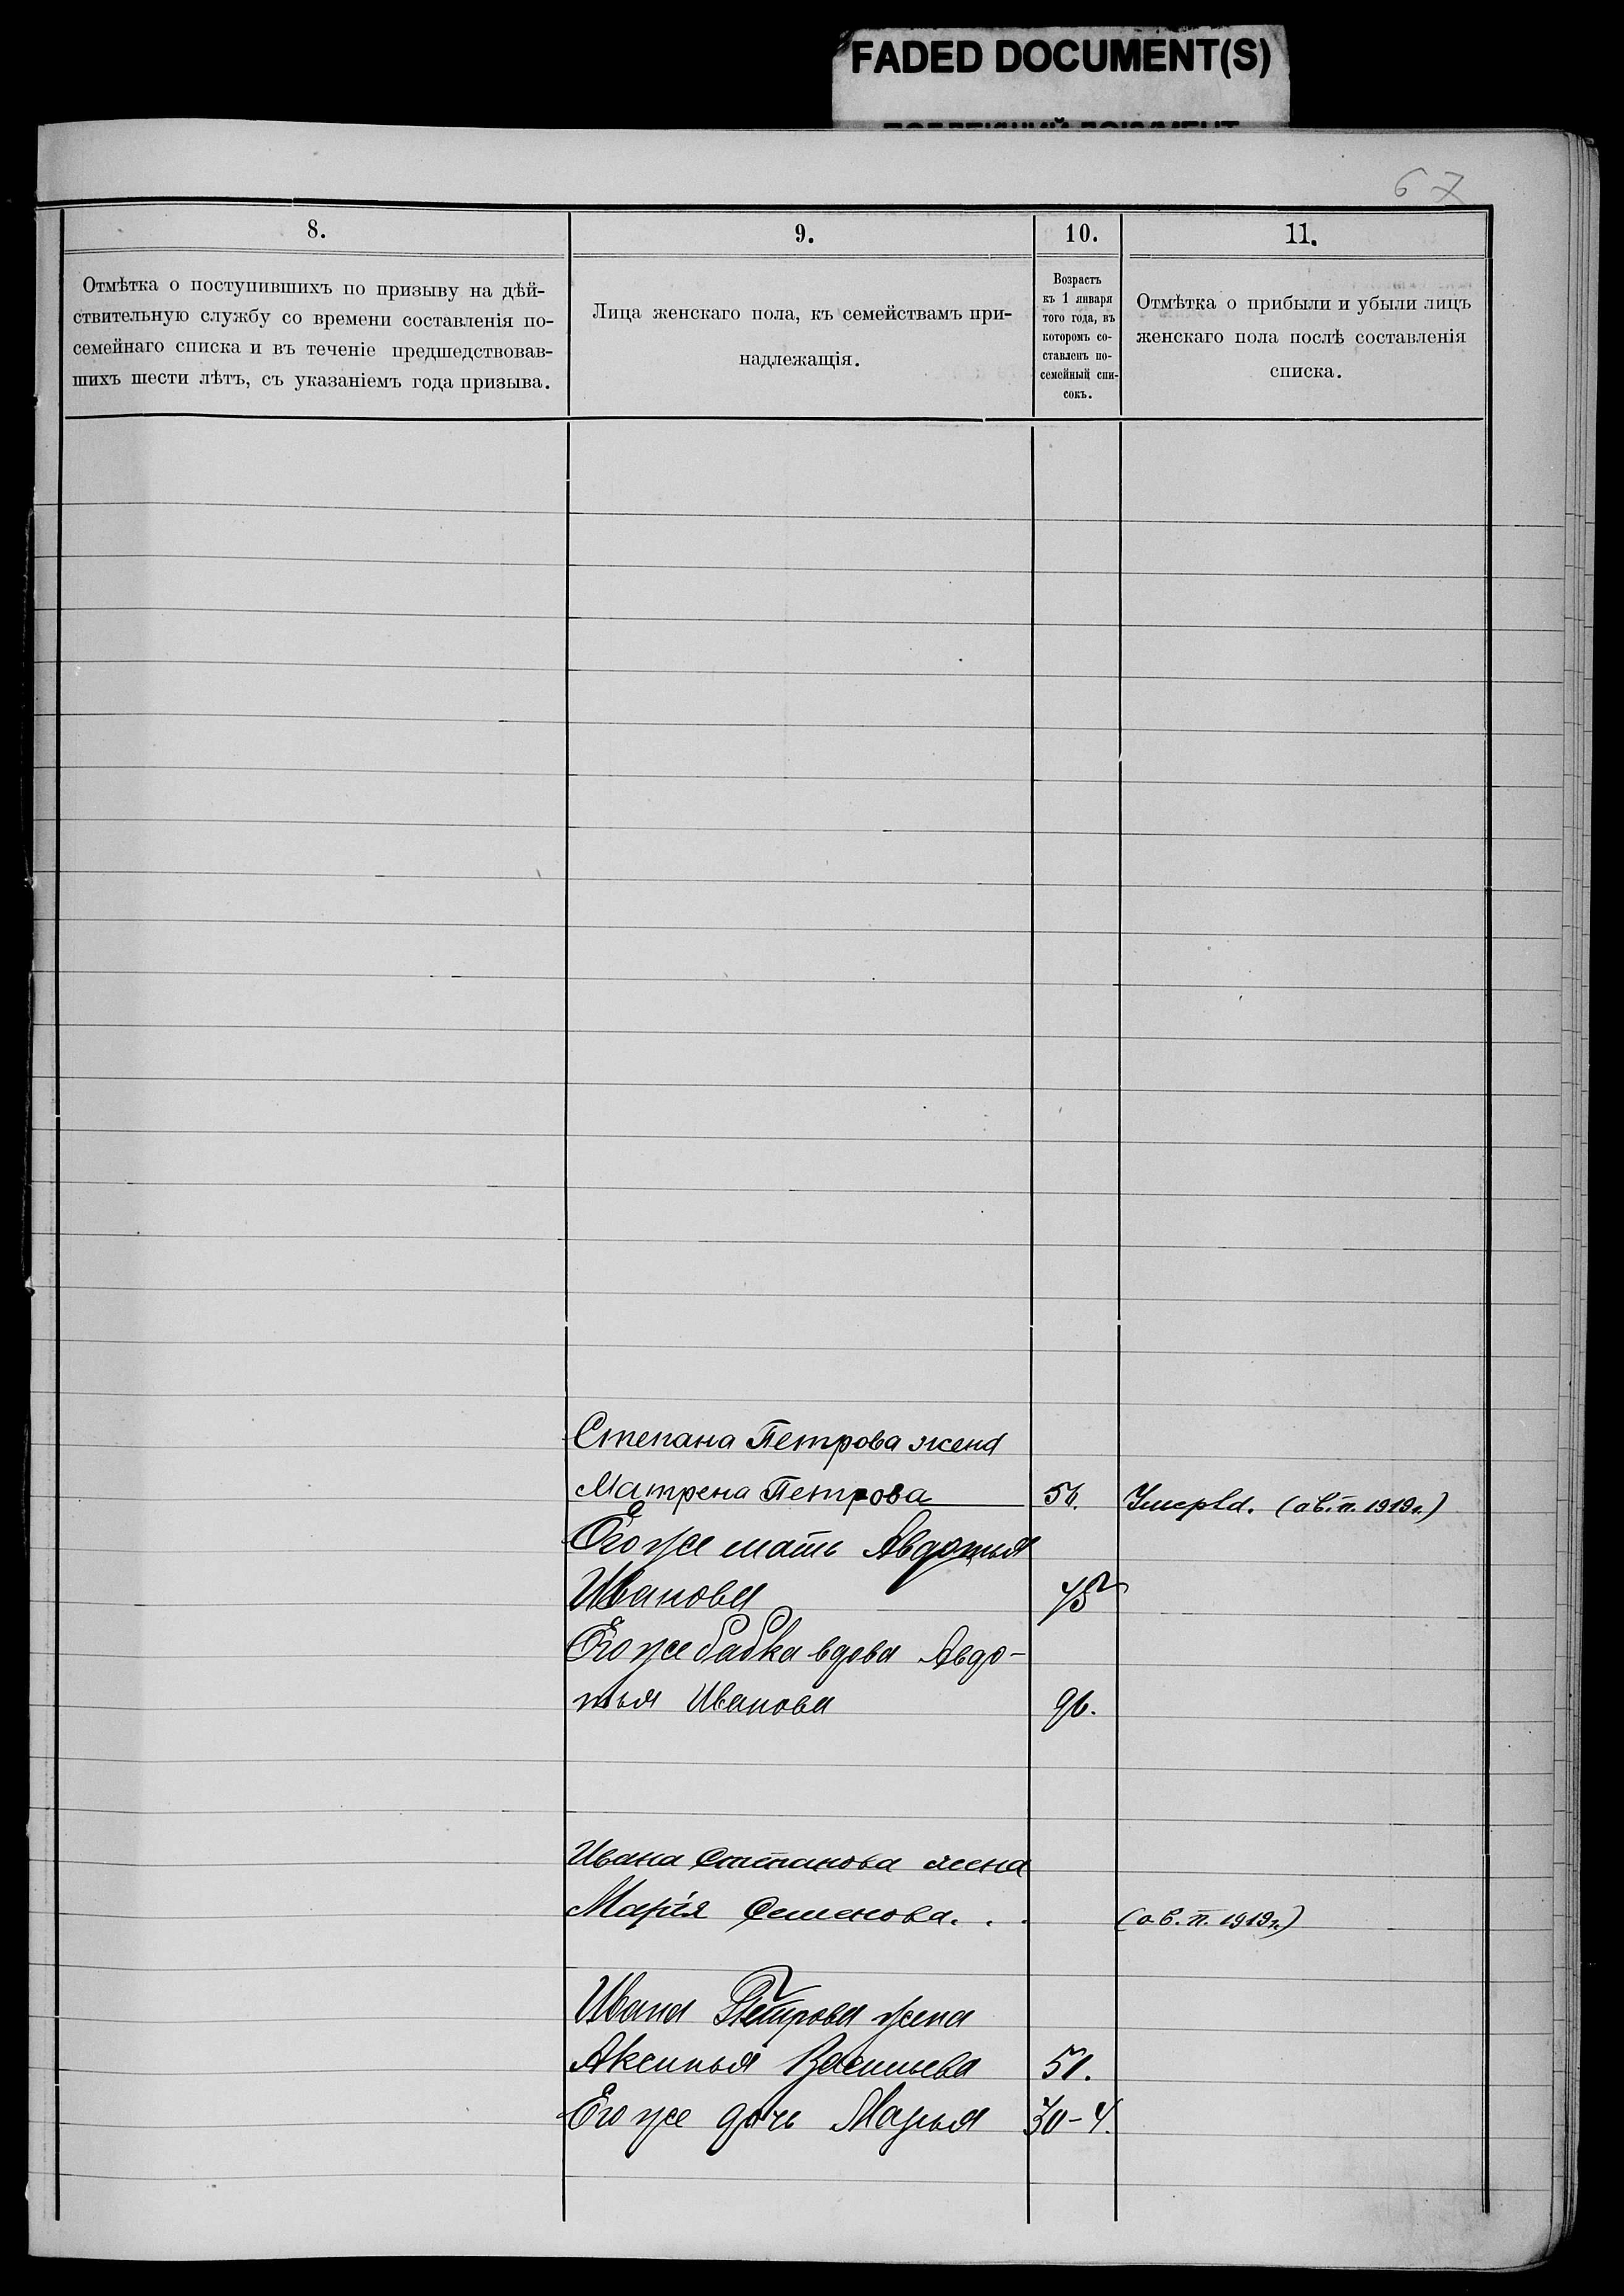 FADED DOCUMENT(S)
67
8.
9.
10.
11.
Отмѣтка о поступившихъ по призыву на дѣй-
ствительную службу со времени составленія по-
семейнаго списка и въ теченіе предшедствовав-
шихъ шести лѣтъ, съ указаніемъ года призыва.
Лица женскаго пола, къ семействамъ при-
надлежащія.
Возрастъ
къ 1 января
того года, въ
которомъ со-
ставленъ по-
семейный спи-
сокъ.
Отмѣтка о прибыли и убыли лицъ
женскаго пола послѣ составленія
списка.
Степана Петрова жена
Матрена Петрова 56. Умерла. (а в. п. 1919 г.)
Его же мать Авдотья
Иванова 75
Его же бабка вдова Авдо-
тья Иванова 96.
Ивана Степанова жена
Марія Семенова. . . (а в. п. 1919 г.)
Ивана Петрова жена
Аксинья Васильева 51.
Его же дочь Марья 30-4.